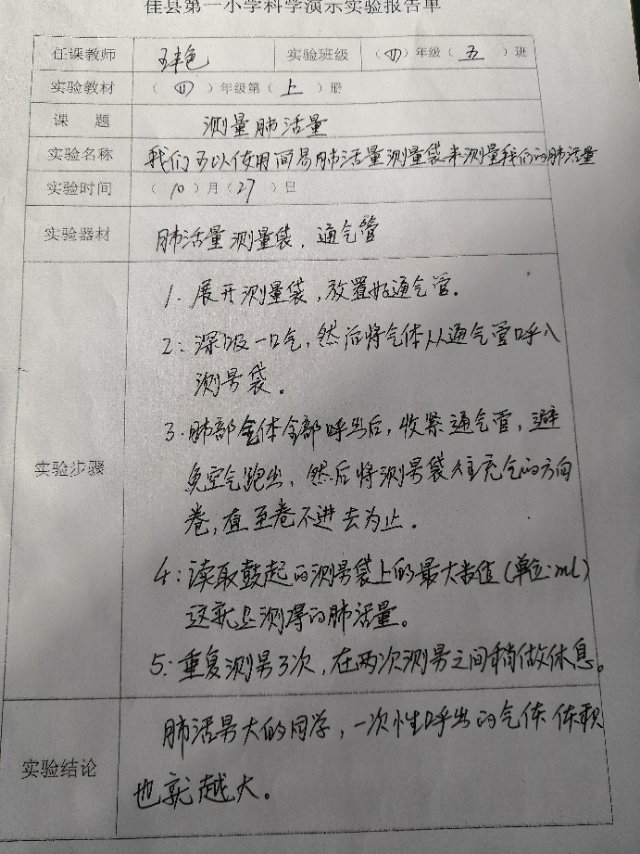 佳县第一小学科学演示实验报告单
任课教师 实验班级 （四）年级（五）班
实验教材 （四）年级第（上）册
课 题 测量肺活量
实验名称 我们可以使用简易肺活量测量袋来测量我们的肺活量
实验时间 （10）月（27）日
实验器材 肺活量测量袋，通气管
1. 展开测量袋，放置好通气管。
2: 深吸一口气，然后将气体从通气管呼入
测量袋。
3. 肺部气体全部呼出后，收紧通气管，避
免空气跑出，然后将测量袋往充气的方向
实验步骤 卷，直至卷不进去为止。
4: 读取鼓起的测量袋上的最大数值（单位:ml）
这就是测得的肺活量。
5: 重复测量3次，在两次测量之间稍做休息。
肺活量大的同学，一次性呼出的气体体积
实验结论 也就越大。